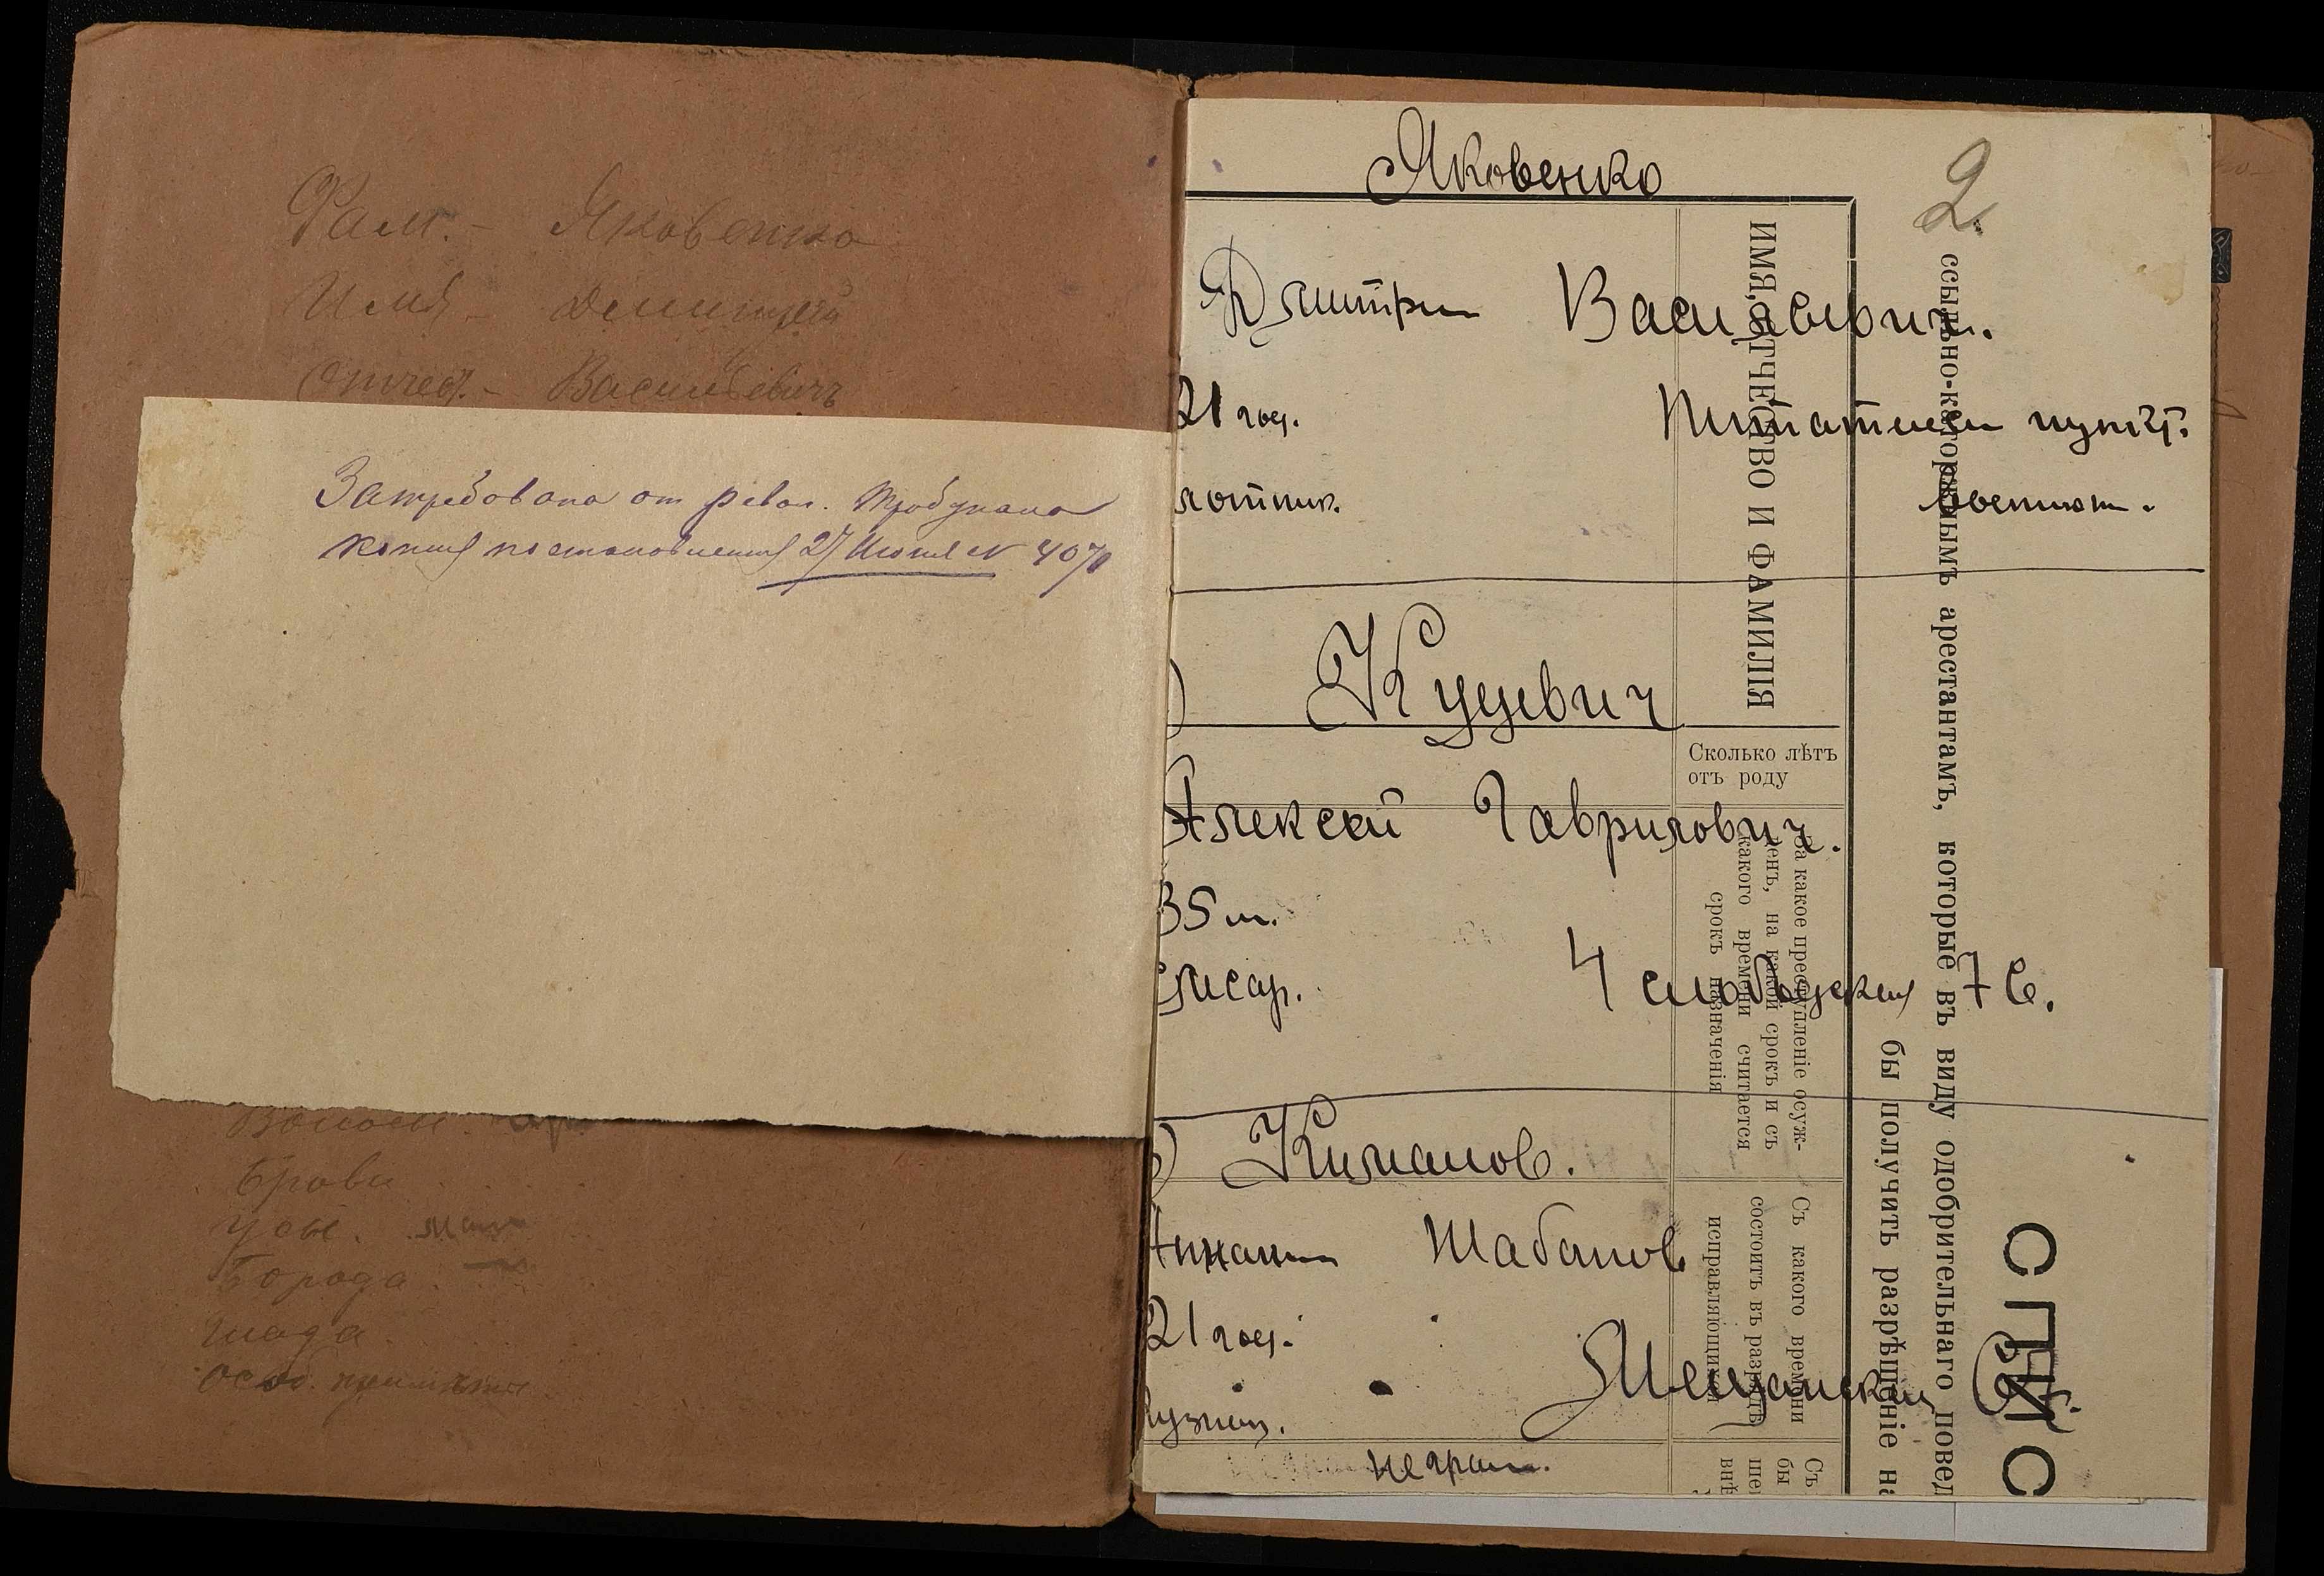 Фам. - Яковенко
Имя - Дмитрій
Отчест. - Васильевичъ
Затребована от револ. Трибунала
копия постановления 27 Июня № 4070
Волосы.
Брови
Усы.
Борода
Глаза
Особ. примѣты
Яковенко
2.
Дмитрий Васильевич.
21 год.
Питательн пункт.
Кузевич
Алексей Гаврилович.
35 л.
слесар.
4 слободская 76.
Килианов.
Шабанов
21 год.
Мещанская
кузнец.
неграм.
СПИС
ссыльно-каторжнымъ арестантамъ, которые въ виду одобрительнаго повед
бы получить разрѣшеніе на
ИМЯ, ОТЧЕСТВО И ФАМИЛІЯ
Сколько лѣтъ
отъ роду
За какое преступленіе осуж-
денъ, на какой срокъ и съ
какого времени считается
срокъ назначенія
Съ какого времени
состоитъ въ разрядѣ
исправляющихся
Съ
бы
шен
внѣ